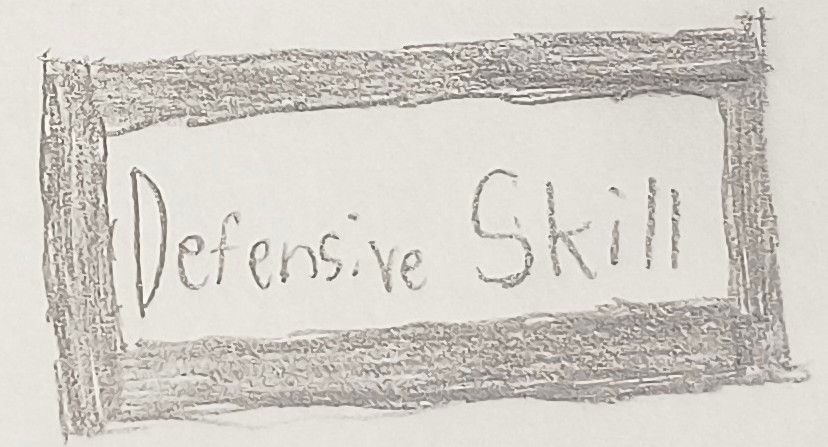 Defensive Skill